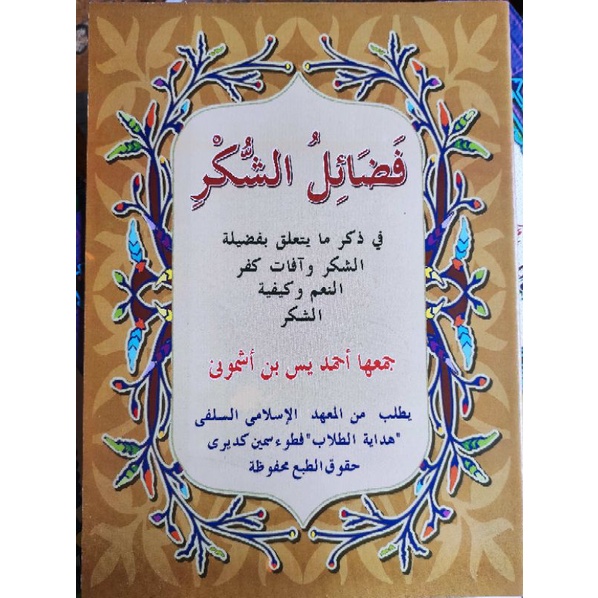 فَضَائِلُ الشُّكْرِ
في ذكر ما يتعلق بفضيلة
الشكر وآفات كفر
النعم وكيفية
الشكر
جمعها أحمد يس بن أشمونى
يطلب من المعهد الإسلامى السلفى
"هداية الطلاب" فطوء سمين كديرى
حقوق الطبع محفوظة